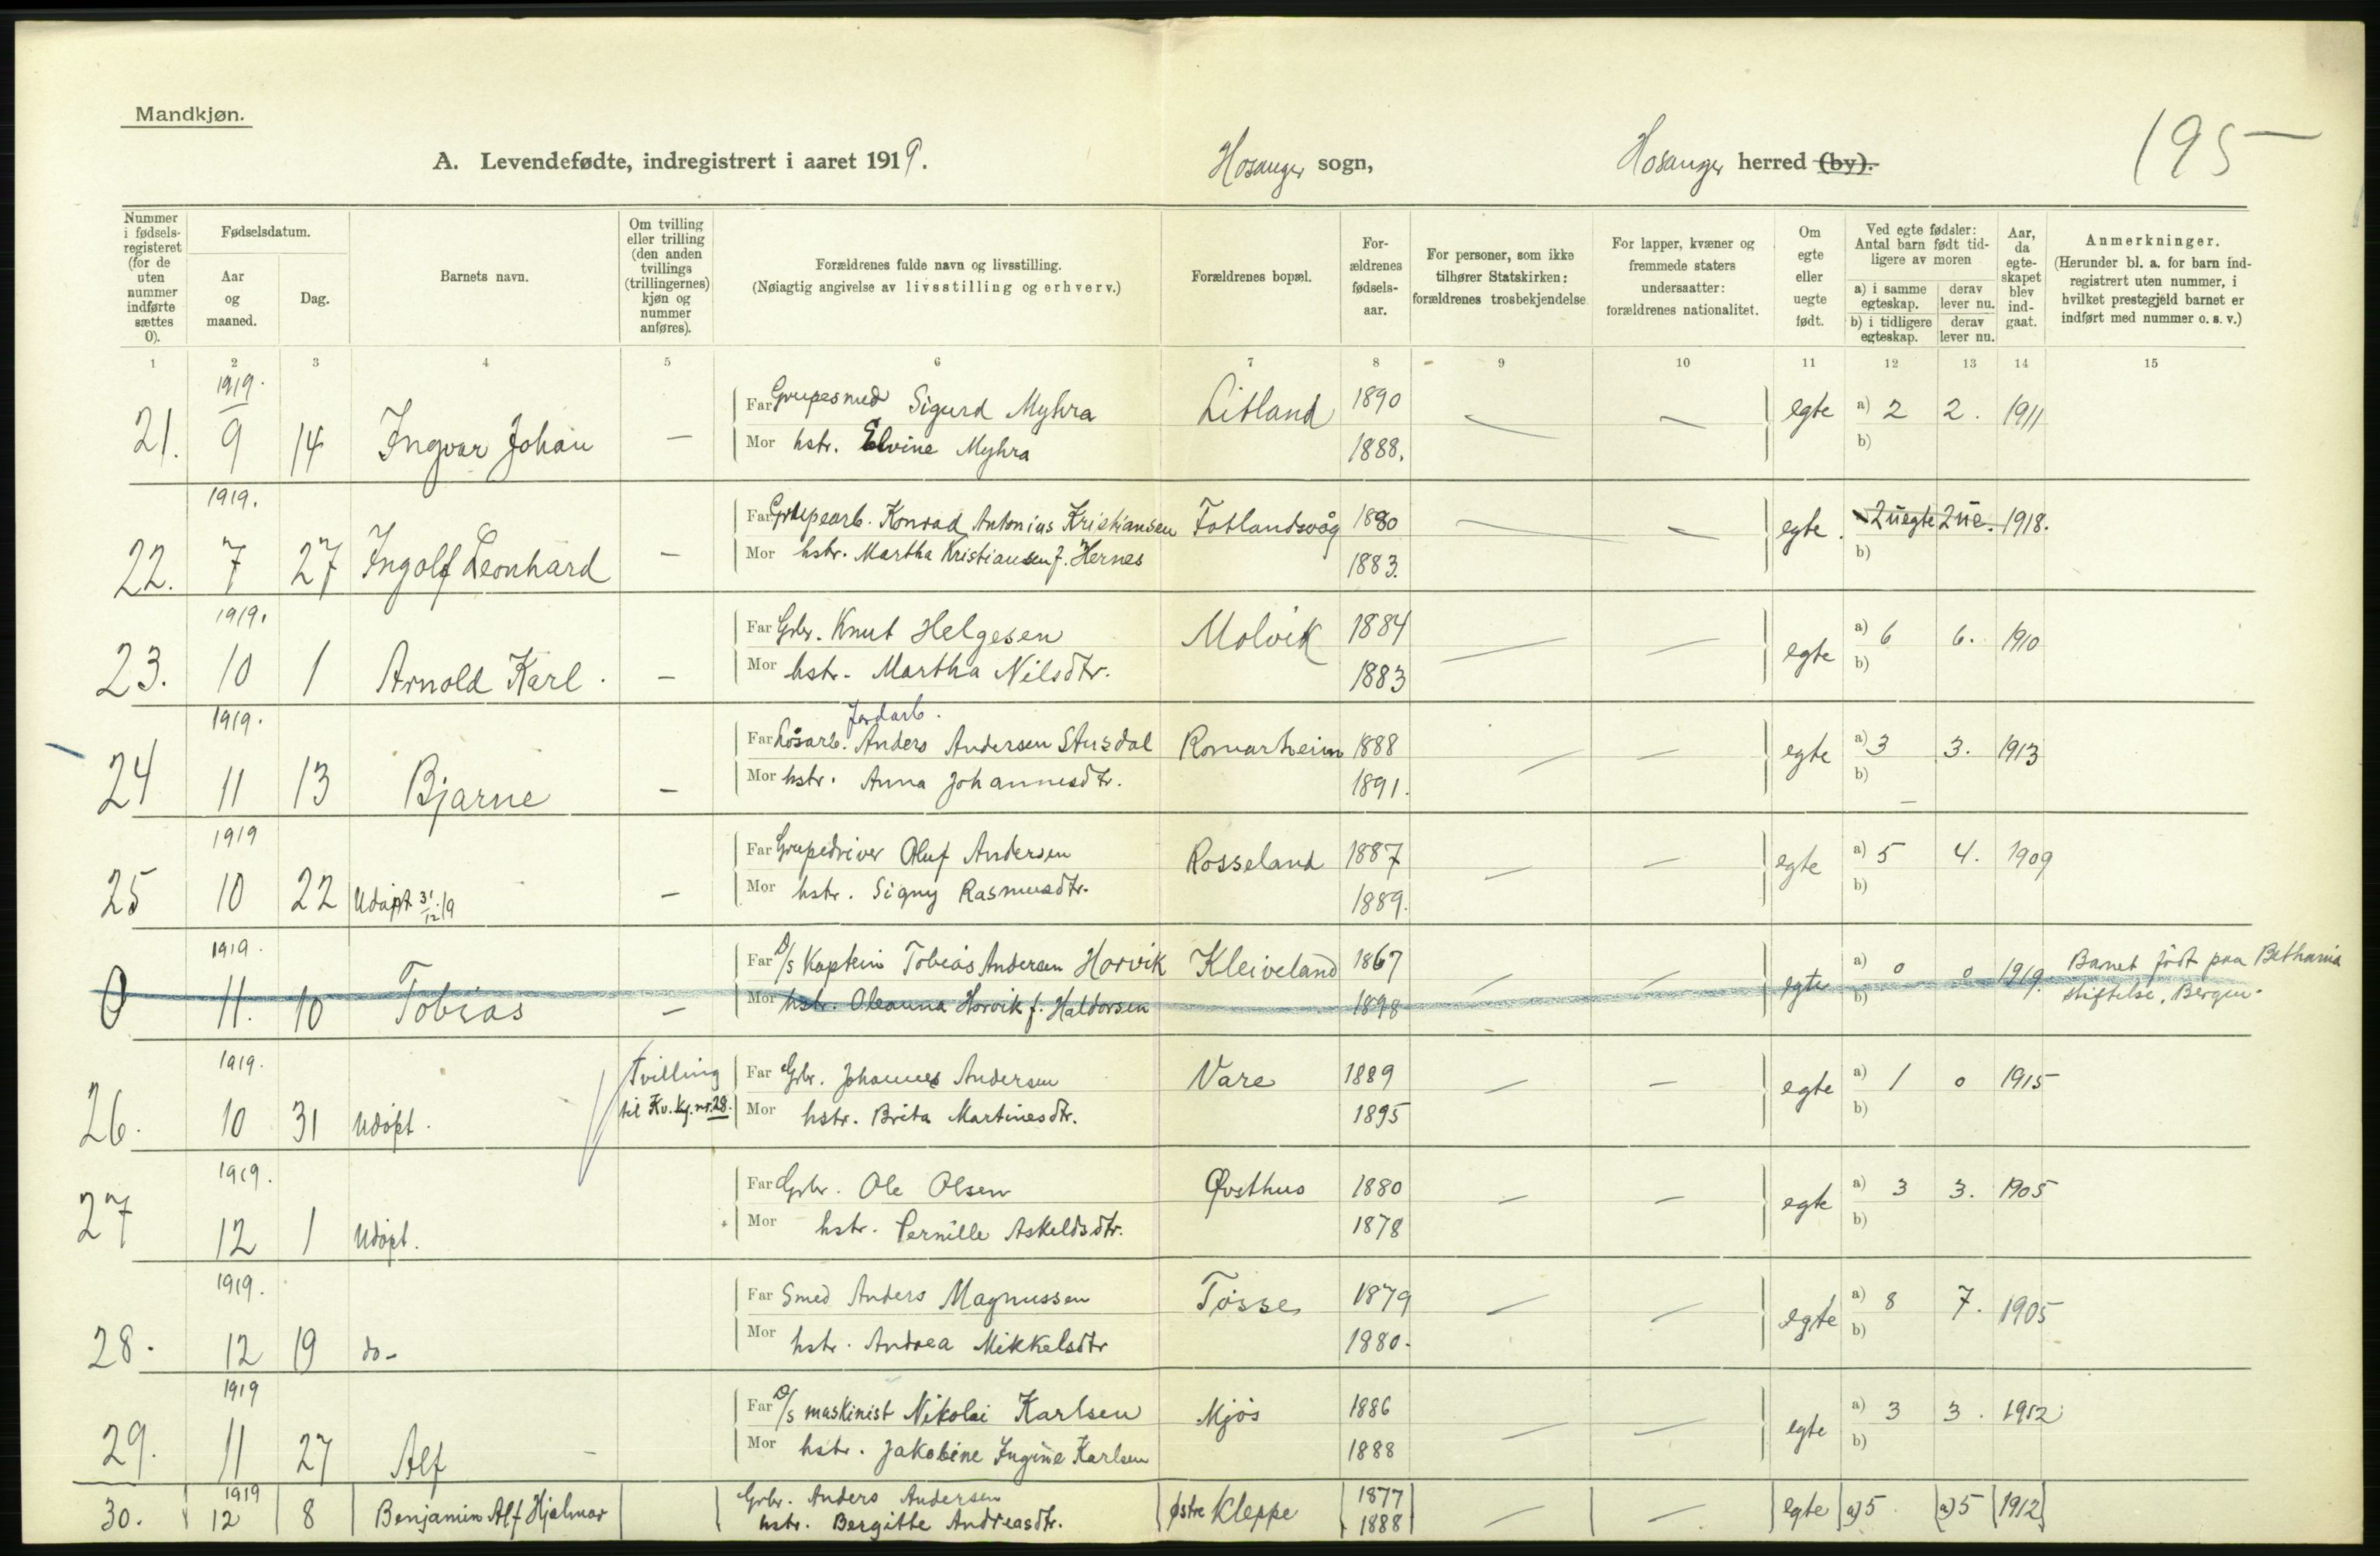 Mandkjøn.
195
A. Levendefødte, indregistrert i aaret 1919. Hosanger sogn, Hosanger herred (by).
Nummer i fødselsregisteret (for de uten nummer indførte sættes 0).
Fødselsdatum.
Aar og maaned.
Dag.
Barnets navn.
Om tvilling eller trilling (den anden tvillings (trillingernes) kjøn og nummer anføres).
Forældrenes fulde navn og livsstilling.
(Nøiagtig angivelse av livsstilling og erhverv.)
Forældrenes bopæl.
Forældrenes fødselsaar.
For personer, som ikke tilhører Statskirken: forældrenes trosbekjendelse
For lapper, kvæner og fremmede staters undersaatter: forældrenes nationalitet.
Om egte eller uegte født.
Ved egte fødsler: Antal barn født tidligere av moren
a) i samme egteskap. derav lever nu.
b) i tidligere egteskap. derav lever nu.
Aar, da egteskapet blev indgaat.
Anmerkninger.
(Herunder bl. a. for barn indregistrert uten nummer, i hvilket prestegjeld barnet er indført med nummer o. s. v.)
1 2 3 4 5 6 7 8 9 10 11 12 13 14 15
1919.
21. 9 14 Ingvar Johan — Far Grupesmed Sigurd Myhra Litland 1890 — — egte a) 2 2. 1911
Mor hstr. Elvine Myhra 1888. b)
1919.
22. 7 27 Ingolf Leonhard — Far Grupearb. Konrad Antonius Kristiansen Fotlandsvåg 1880 — — egte. 2 uegte 2 ue. 1918.
Mor hstr. Martha Kristiansen f. Hernes 1883. b)
1919.
23. 10 1 Arnold Karl. — Far Grbr. Knut Helgesen Molvik 1884 — — egte a) 6 6. 1910
Mor hstr. Martha Nilsdtr. 1883 b)
1919. Jordarb.
24 11 13 Bjarne — Far Løsarb. Anders Andersen Stusdal Romarheim 1888 — — egte a) 3 3. 1913
Mor hstr. Anna Johannesdtr. 1891. b)
1919
25 10 22 Udøpt 31/12.19 — Far Grupedriver Oluf Andersen Rosseland 1887 — — egte a) 5 4. 1909
Mor hstr. Signy Rasmusdtr. 1889. b)
1919.
0 11. 10 Tobias — Far D/s Kaptein Tobias Andersen Horvik Kleiveland 1867 — — egte a) 0 0 1919. Barnet født paa Bethania
Mor hstr. Oleanna Horvik f. Haldorsen 1898 b) Stiftelse, Bergen.
1919.
26. 10 31 Udøpt. Tvilling til Kv. Kj. nr. 28. Far Grbr. Johannes Andersen Vare 1889 — — egte a) 1 0 1915
Mor hstr. Brita Martinesdtr. 1895 b)
1919.
27 12 1 Udøpt. Far Grbr. Ole Olsen Øvsthus 1880 — — egte a) 3 3. 1905
Mor hstr. Pernille Askeldsdtr. 1878 b)
1919.
28. 12 19 do- Far Smed Anders Magnussen Tøsse 1879 — — egte a) 8 7. 1905
Mor hstr. Andrea Mikkelsdtr 1880. b)
1919
29. 11 27 Alf — Far D/s maskinist Nikolai Karlsen Mjøs 1886 — — egte a) 3 3. 1912
Mor hstr. Jakobine Ingine Karlsen 1888 b)
1919
30. 12 8 Benjamin Alf Hjalmar Grbr. Anders Andersen østre Kleppe 1877 — — egte a) 5. a) 5 1912
hstr. Bergitte Andreasdtr. 1888